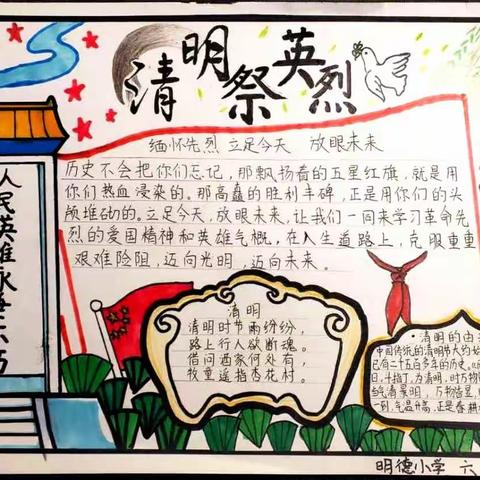 清明祭英烈
缅怀先烈 立足今天 放眼未来
历史不会把你们忘记，那飘扬着的五星红旗，就是用
你们热血浸染的。那高矗的胜利丰碑，正是用你们的头
颅堆砌的。立足今天，放眼未来，让我们一同来学习革命先
烈的爱国精神和英雄气概，在人生道路上，克服重重
艰难险阻，迈向光明，迈向未来。
人民英雄永垂不朽
清明
清明时节雨纷纷，
路上行人欲断魂。
借问酒家何处有，
牧童遥指杏花村。
·清明的由
中国传统的清明节大约始
已有二十五百多年的历史。
日，十指丁，为清明，时万物
气清景明，万物皆显，
一到，气温升高，正是春耕
明德小学 六